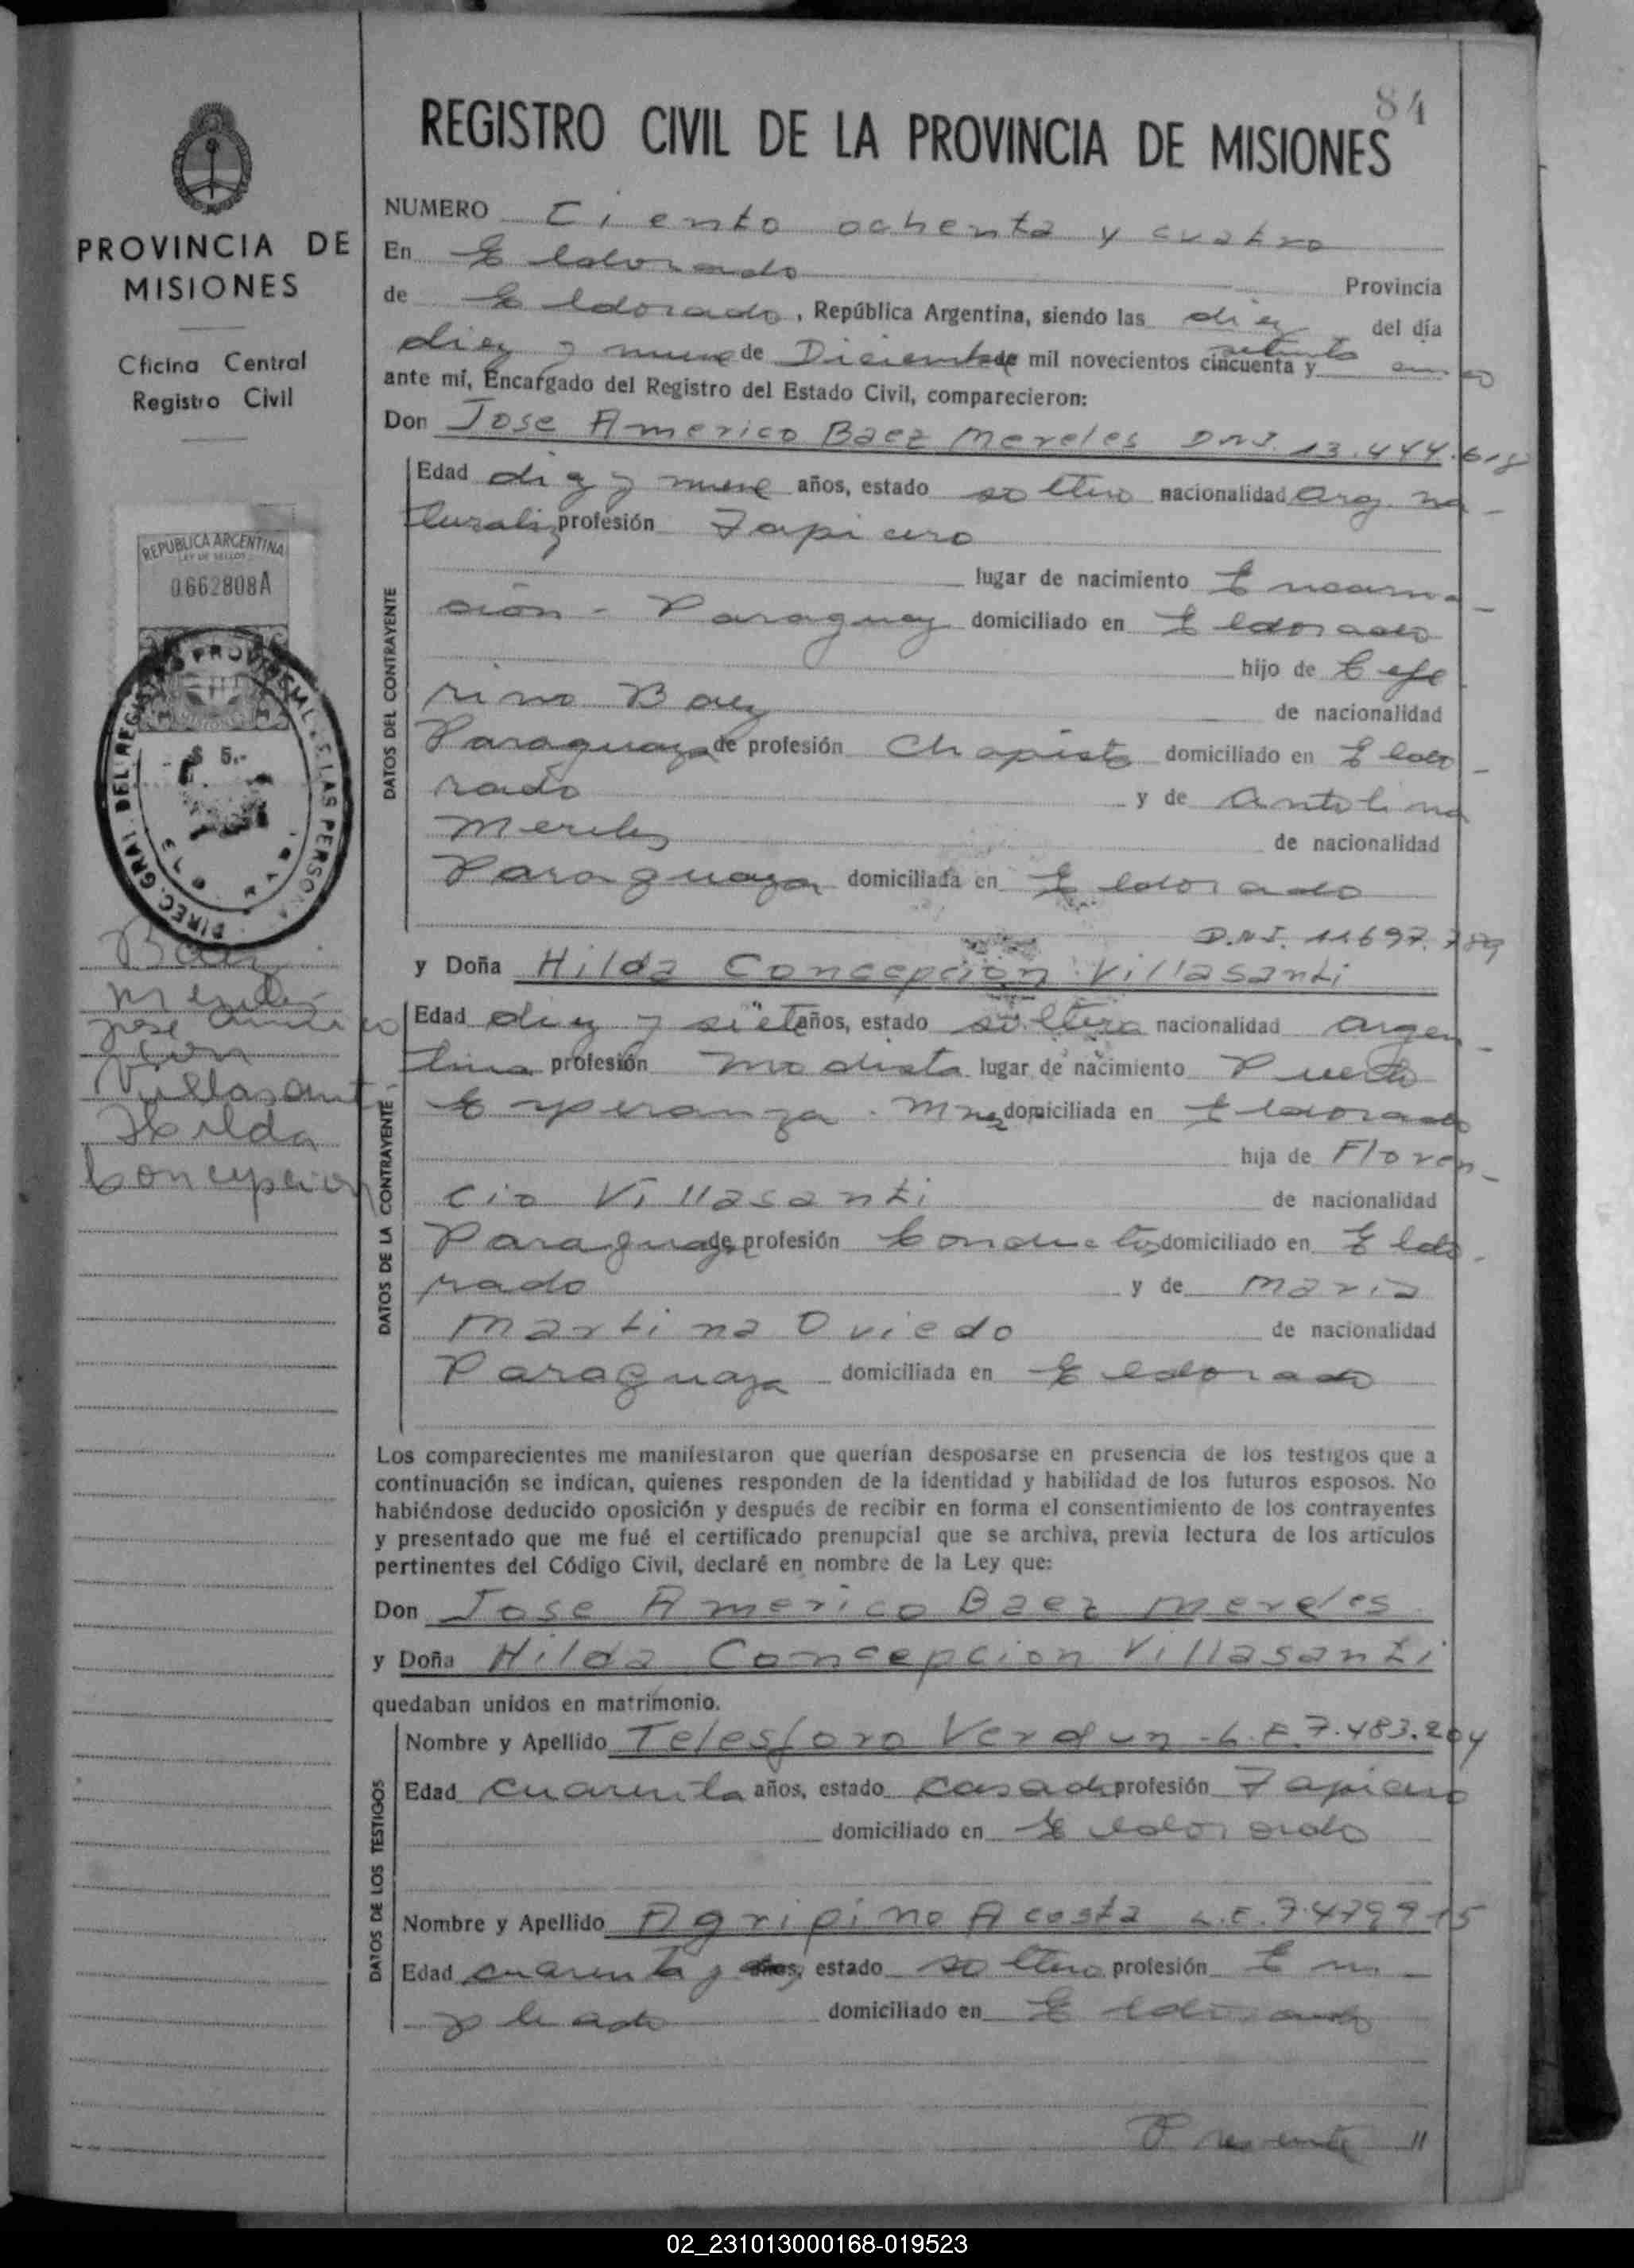 84
REGISTRO CIVIL DE LA PROVINCIA DE MISIONES
PROVINCIA DE
MISIONES
Oficina Central
Registro Civil
REPUBLICA ARGENTINA
LEY DE SELLOS
0662808A
$ 5.-
DIREC. GRAL. DEL REGISTRO PROVINCIAL DE LAS PERSONAS
Baez
Mereles
Jose Americo
con
Villasanti
Hilda
Concepcion
NUMERO Ciento ochenta y cuatro
En Eldorado Provincia
de Eldorado, República Argentina, siendo las diez del día
setenta
diez y nueve de Diciembre de mil novecientos cincuenta y cinco
ante mí, Encargado del Registro del Estado Civil, comparecieron:
Don Jose Americo Baez Mereles D.N.I. 13.444.618
DATOS DEL CONTRAYENTE
Edad diez y nueve años, estado soltero nacionalidad Arg. na-
turaliz profesión Tapicero
lugar de nacimiento Encarna-
ción - Paraguay domiciliado en Eldorado
hijo de Cefe
rino Baez de nacionalidad
Paraguaya de profesión Chapista domiciliado en Eldo-
rado y de Antolina
Mereles de nacionalidad
Paraguaya domiciliada en Eldorado
D.N.I. 11.697.789
y Doña Hilda Concepcion Villasanti
DATOS DE LA CONTRAYENTE
Edad diez y siete años, estado soltera nacionalidad argen-
tina profesión modista lugar de nacimiento Puerto
Esperanza - Mnes domiciliada en Eldorado
hija de Floren-
cio Villasanti de nacionalidad
Paraguaya de profesión Conductor domiciliado en Eldo-
rado y de Maria
Martina Oviedo de nacionalidad
Paraguaya domiciliada en Eldorado
Los comparecientes me manifestaron que querían desposarse en presencia de los testigos que a
continuación se indican, quienes responden de la identidad y habilidad de los futuros esposos. No
habiéndose deducido oposición y después de recibir en forma el consentimiento de los contrayentes
y presentado que me fué el certificado prenupcial que se archiva, previa lectura de los artículos
pertinentes del Código Civil, declaré en nombre de la Ley que:
Don Jose Americo Baez Mereles
y Doña Hilda Concepcion Villasanti
quedaban unidos en matrimonio.
DATOS DE LOS TESTIGOS
Nombre y Apellido Telesforo Verdun - L.E. 7.483.204
Edad cuarenta años, estado casado profesión Tapicero
domiciliado en Eldorado
Nombre y Apellido Agripino Acosta L.E. 7.479.915
Edad cuarenta y años, estado soltero profesión Em-
pleado domiciliado en Eldorado
Presente //
02_231013000168-019523